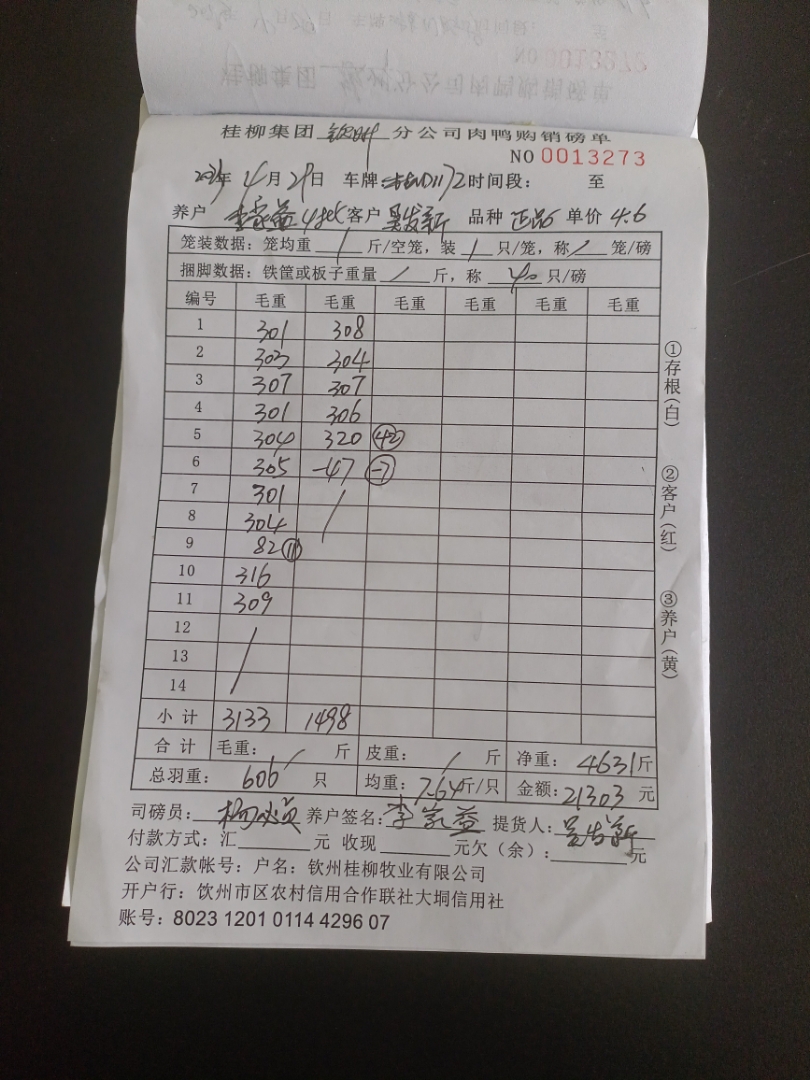 桂柳集团 钦州 分公司肉鸭购销磅单
NO 0013273
年 4 月 29 日 车牌: 172 时间段: 至
养户 李家益 4批 客户 吴发新 品种 正品 单价 4.6
笼装数据: 笼均重 / 斤/空笼, 装 / 只/笼, 称 / 笼/磅
捆脚数据: 铁筐或板子重量 / 斤, 称 40 只/磅
编号 毛重 毛重 毛重 毛重 毛重 毛重
1 301 308
2 303 304
3 307 307
4 301 306
5 304 320 42
6 305 -47 -7
7 301 /
8 304
9 82 11
10 316
11 309
12 /
13
14
小计 3133 1498
合计 毛重: / 斤 皮重: / 斤 净重: 4631 斤
总羽重: 606 只 均重: 7.64 斤/只 金额: 21303 元
司磅员: 养户签名: 李家益 提货人: 吴发新
付款方式: 汇 元 收现 元欠(余): 元
公司汇款帐号: 户名: 钦州桂柳牧业有限公司
开户行: 钦州市区农村信用合作联社大垌信用社
账号: 8023 1201 0114 4296 07
①存根(白)
②客户(红)
③养户(黄)